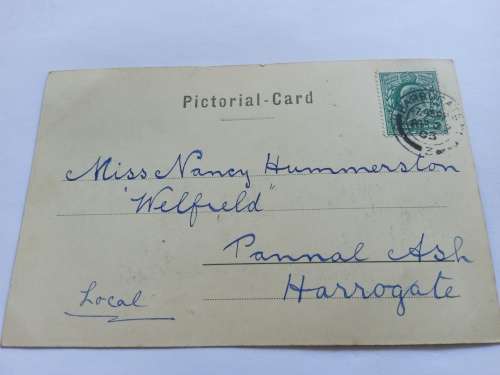 Pictorial-Card
Miss Nancy Hummerston
"Welfield"
Pannal Ash
Harrogate
Local